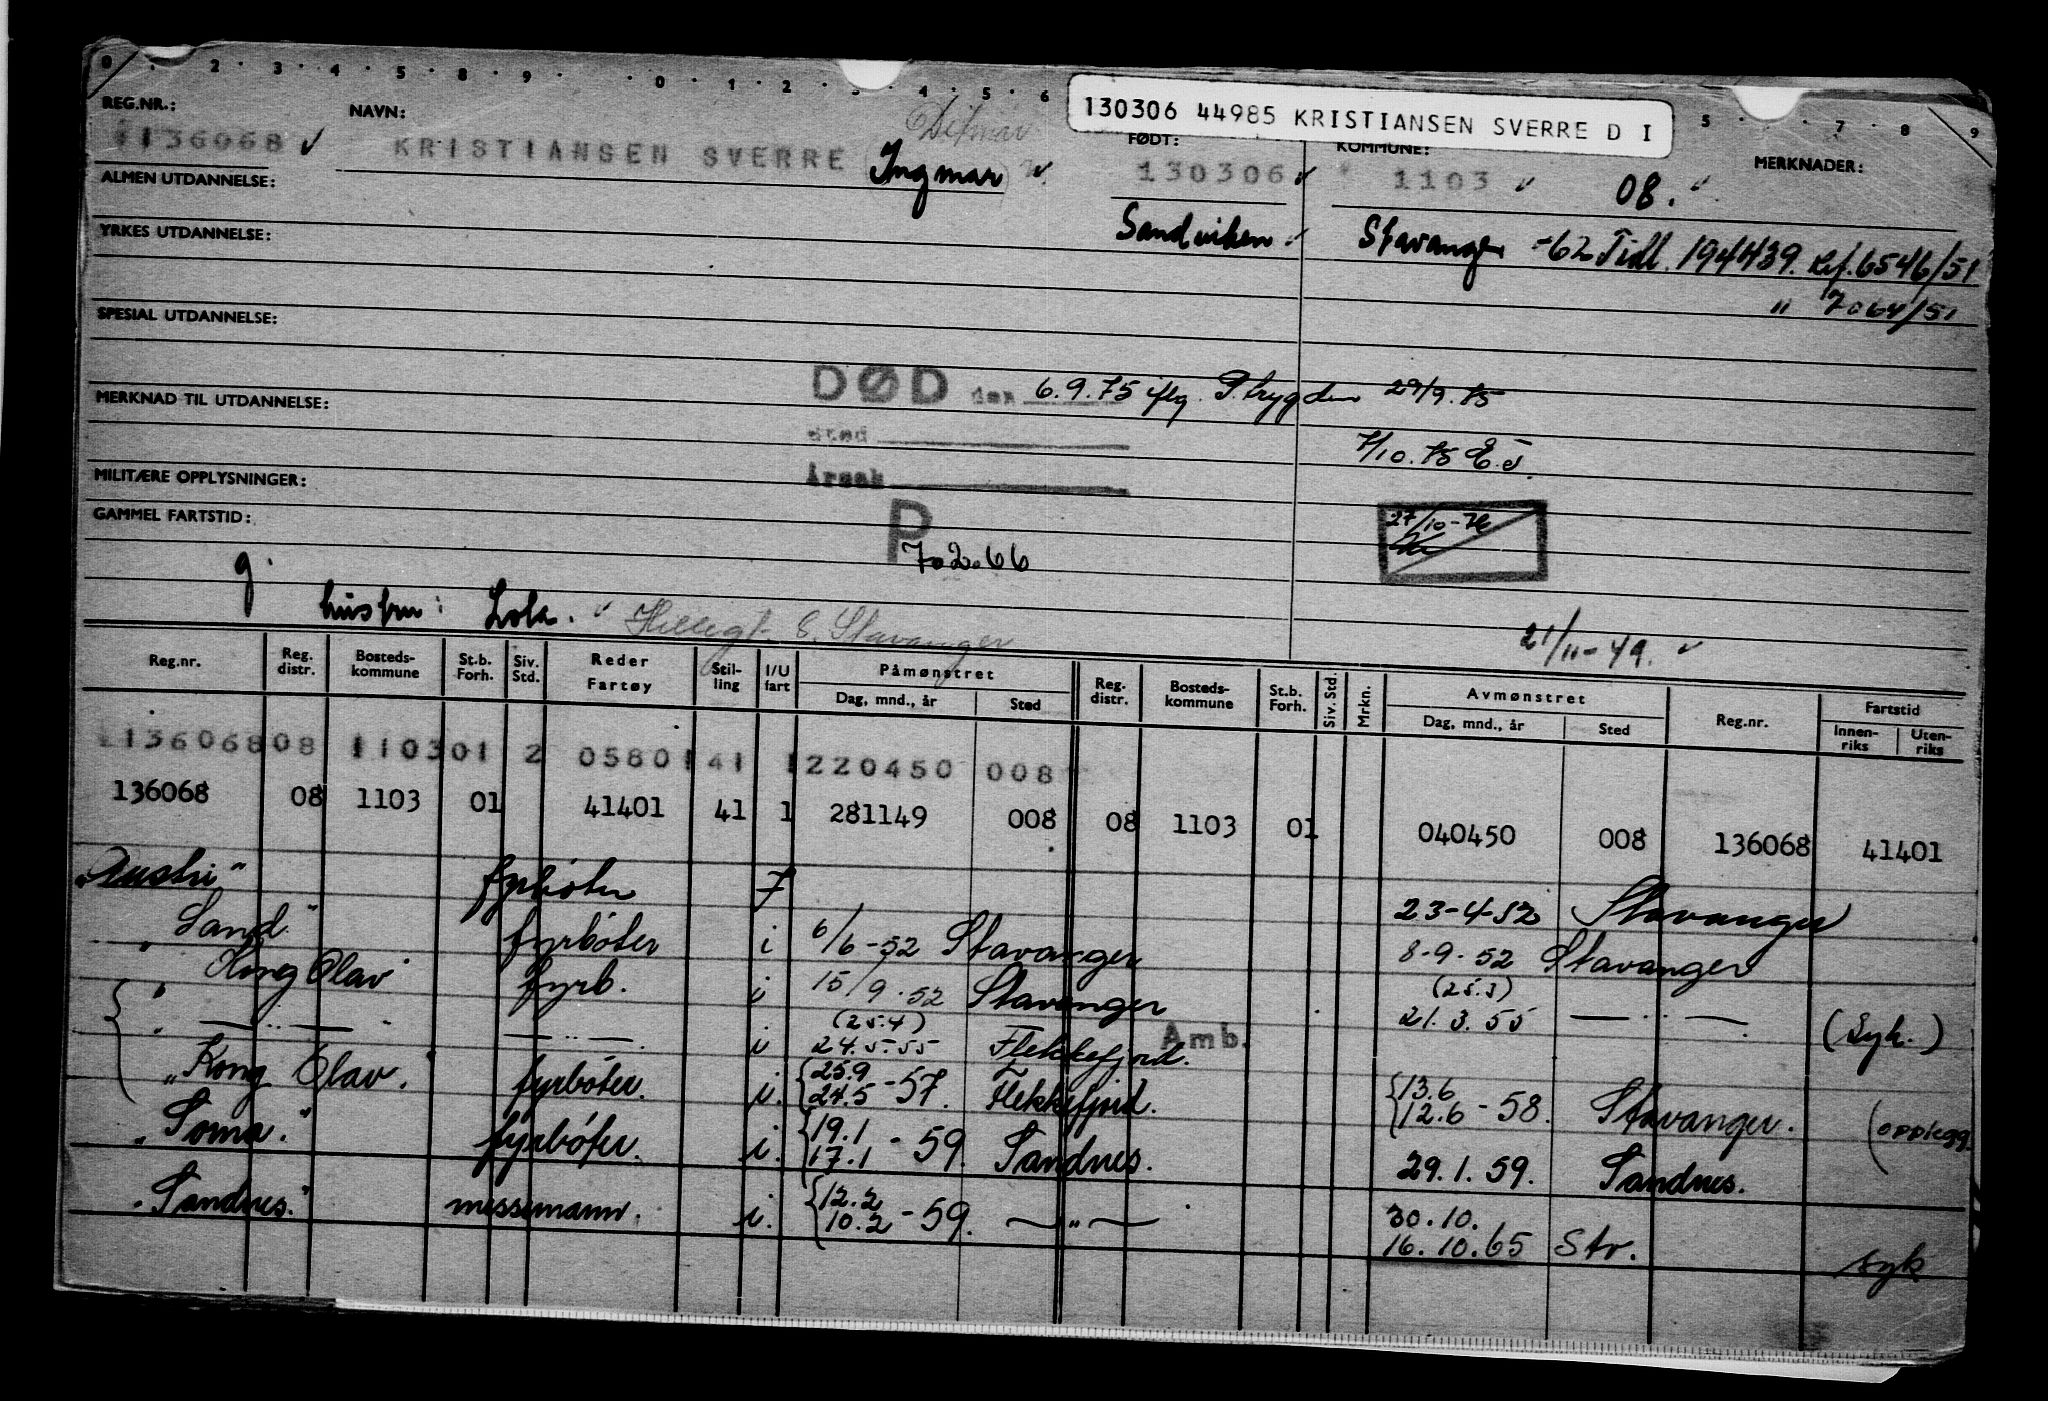 0 . 2 . 3 . 4 . 5 . 8 . 9 . 0 . 1 . 2 . 3 . 4 . 5 . 6 5 . 7 . 8 . 9
130306 44985 KRISTIANSEN SVERRE D I
REG.NR.: NAVN: Ditmar FØDT: KOMMUNE: MERKNADER:
136068 ✓ KRISTIANSEN SVERRE (Ingmar) ✓ 130306 ✓ 1103 ✓ 08. ✓
ALMEN UTDANNELSE:
Sandviken ✓ Stavanger -62 Tidl. 194439. Ref. 6546/51
YRKES UTDANNELSE:
" 7064/51
SPESIAL UTDANNELSE:
DØD den 6.9.75 iflg. P.trygden 29/9.75
MERKNAD TIL UTDANNELSE:
Sted
7/10.75 E.J.
MILITÆRE OPPLYSNINGER:
Årsak
GAMMEL FARTSTID:
P 7.2.66
27/10-76
g.
hustru: Lola. ✓ Hillegt. 8. Stavanger
21/11-49. ✓
Reg.nr. Reg. distr. Bosteds-kommune St.b. Forh. Siv. Std. Reder Fartøy Stil-ling I/U fart Påmønstret Dag, mnd., år Sted Reg. distr. Bosteds-kommune St.b. Forh. Siv. Std. Mrkn. Avmønstret Dag, mnd., år Sted Reg.nr. Fartstid Innen-riks Uten-riks
13606808 110301 2 0580141 1220450 008
136068 08 1103 01 41401 41 1 281149 008 08 1103 01 040450 008 136068 41401
"Austri" fyrbøter 7 23-4-52 Stavanger
"Sand" fyrbøter i 6/6-52 Stavanger 8-9-52 Stavanger
"Kong Olav" fyrb. i 15/9-52 Stavanger (25.3) 21.3.55 — " — (Syk.)
" — " — — " — i (25.4) 24.5.55 Flekkefjord. Amb.
"Kong Olav." fyrbøter. i. {25.9 24.5 -57. Flekkefjord. {13.6 12.6 -58. Stavanger. (opplegg.
"Soma." fyrbøter. i. {19.1 17.1 -59. Sandnes. 29.1.59. Sandnes.
"Sandnes." messemann. i. {12.2 10.2 -59. — " — 30.10. 16.10.65 Stv. syk